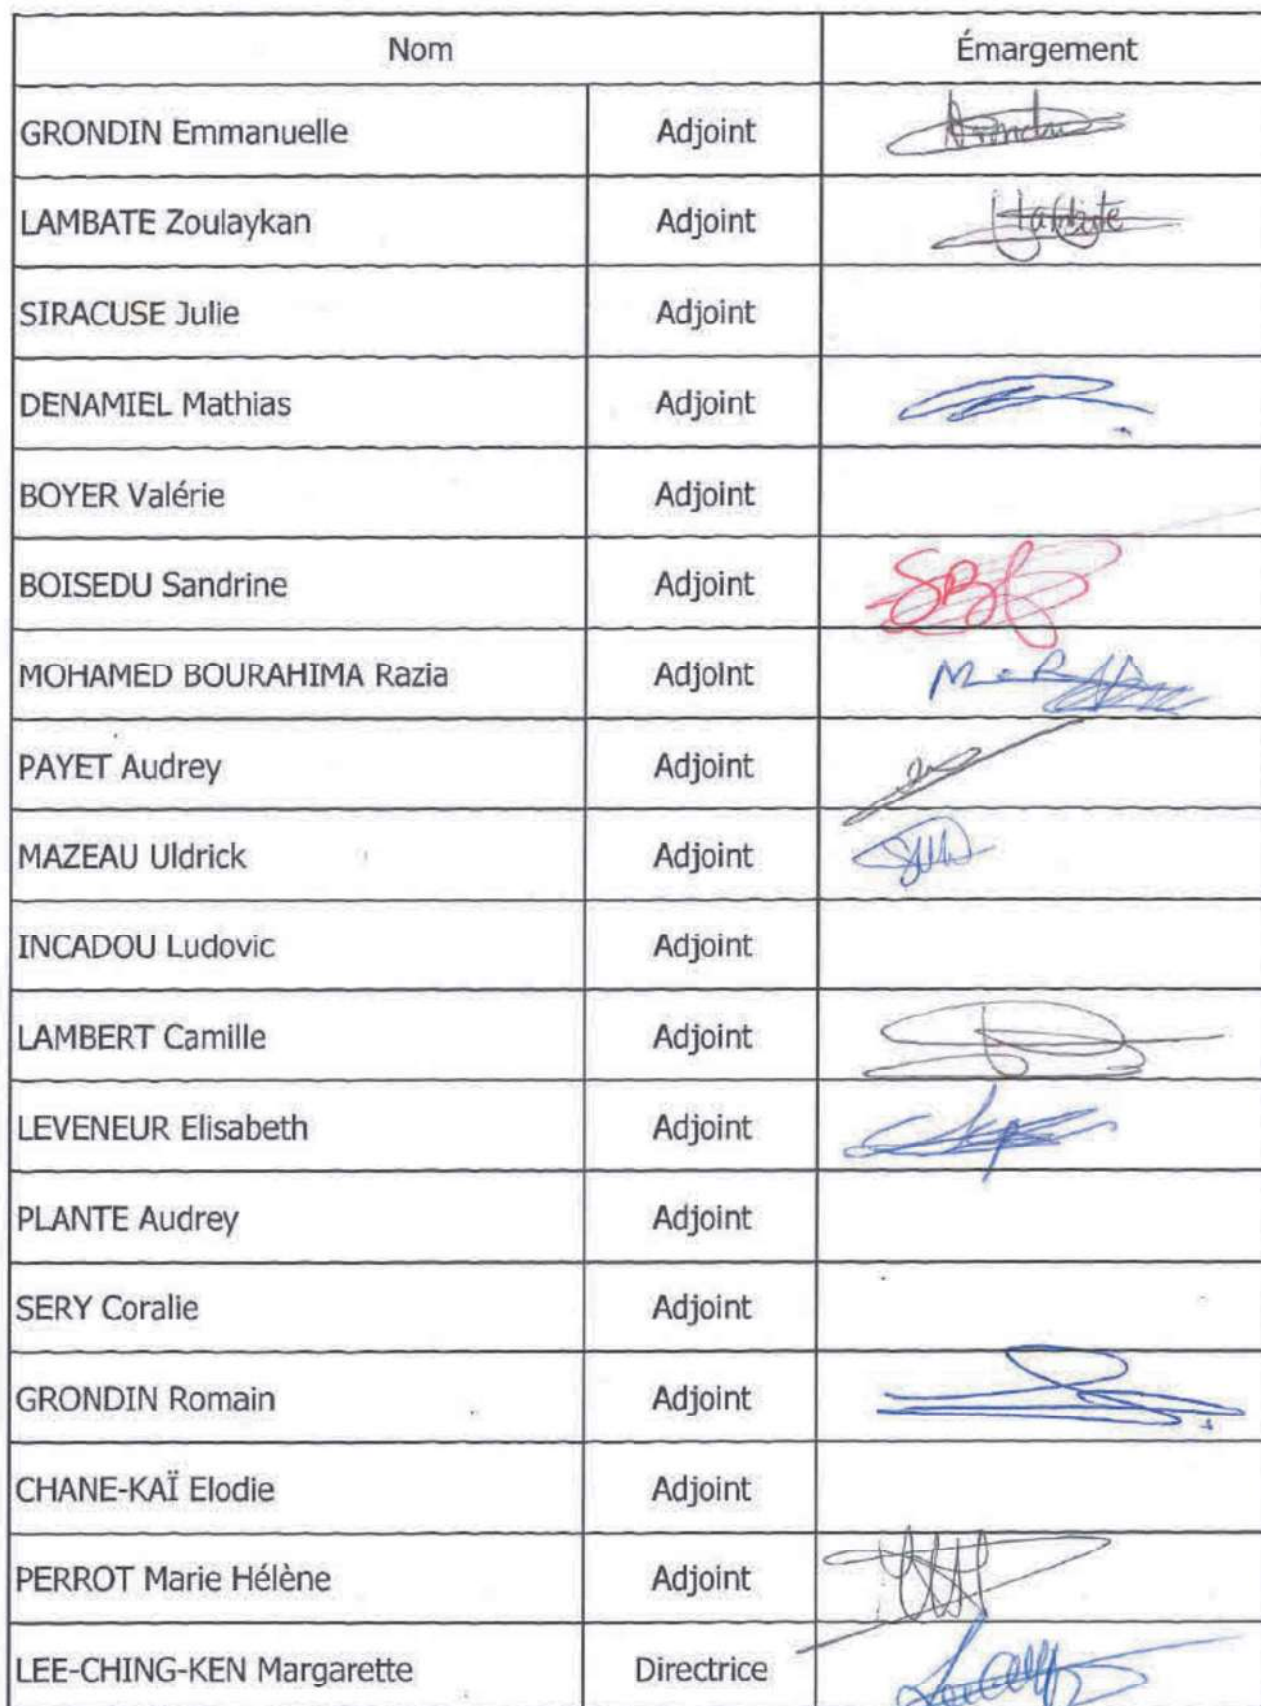 Nom Émargement
GRONDIN Emmanuelle Adjoint Grondin
LAMBATE Zoulaykan Adjoint
SIRACUSE Julie Adjoint
DENAMIEL Mathias Adjoint
BOYER Valérie Adjoint
BOISEDU Sandrine Adjoint
MOHAMED BOURAHIMA Razia Adjoint
PAYET Audrey Adjoint
MAZEAU Uldrick Adjoint
INCADOU Ludovic Adjoint
LAMBERT Camille Adjoint
LEVENEUR Elisabeth Adjoint
PLANTE Audrey Adjoint
SERY Coralie Adjoint
GRONDIN Romain Adjoint
CHANE-KAÏ Elodie Adjoint
PERROT Marie Hélène Adjoint
LEE-CHING-KEN Margarette Directrice